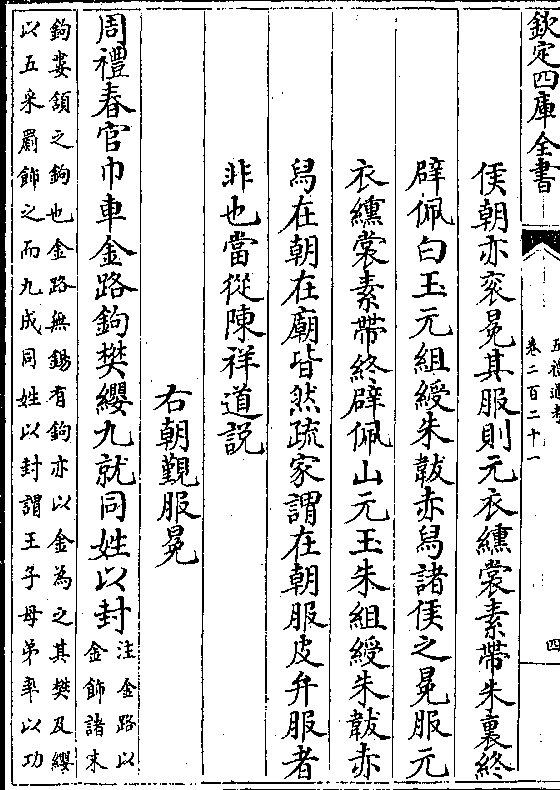 欽定四庫全書
五禮通考
卷二百二十一
四
侯朝亦衮冕其服則元衣纁裳素帶朱裏終
辟佩白玉元組綬朱韍赤舄諸侯之冕服元
衣纁裳素帶終辟佩山元玉朱組綬朱韍赤
舄在朝在廟皆然疏家謂在朝服皮弁服者
非也當從陳祥道説
右朝覲服冕
周禮春官巾車金路鉤樊纓九就同姓以封
注金路以
金飾諸末
鉤婁頷之鉤也金路無錫有鉤亦以金為之其樊及纓
以五采罽飾之而九成同姓以封謂王子母弟率以功